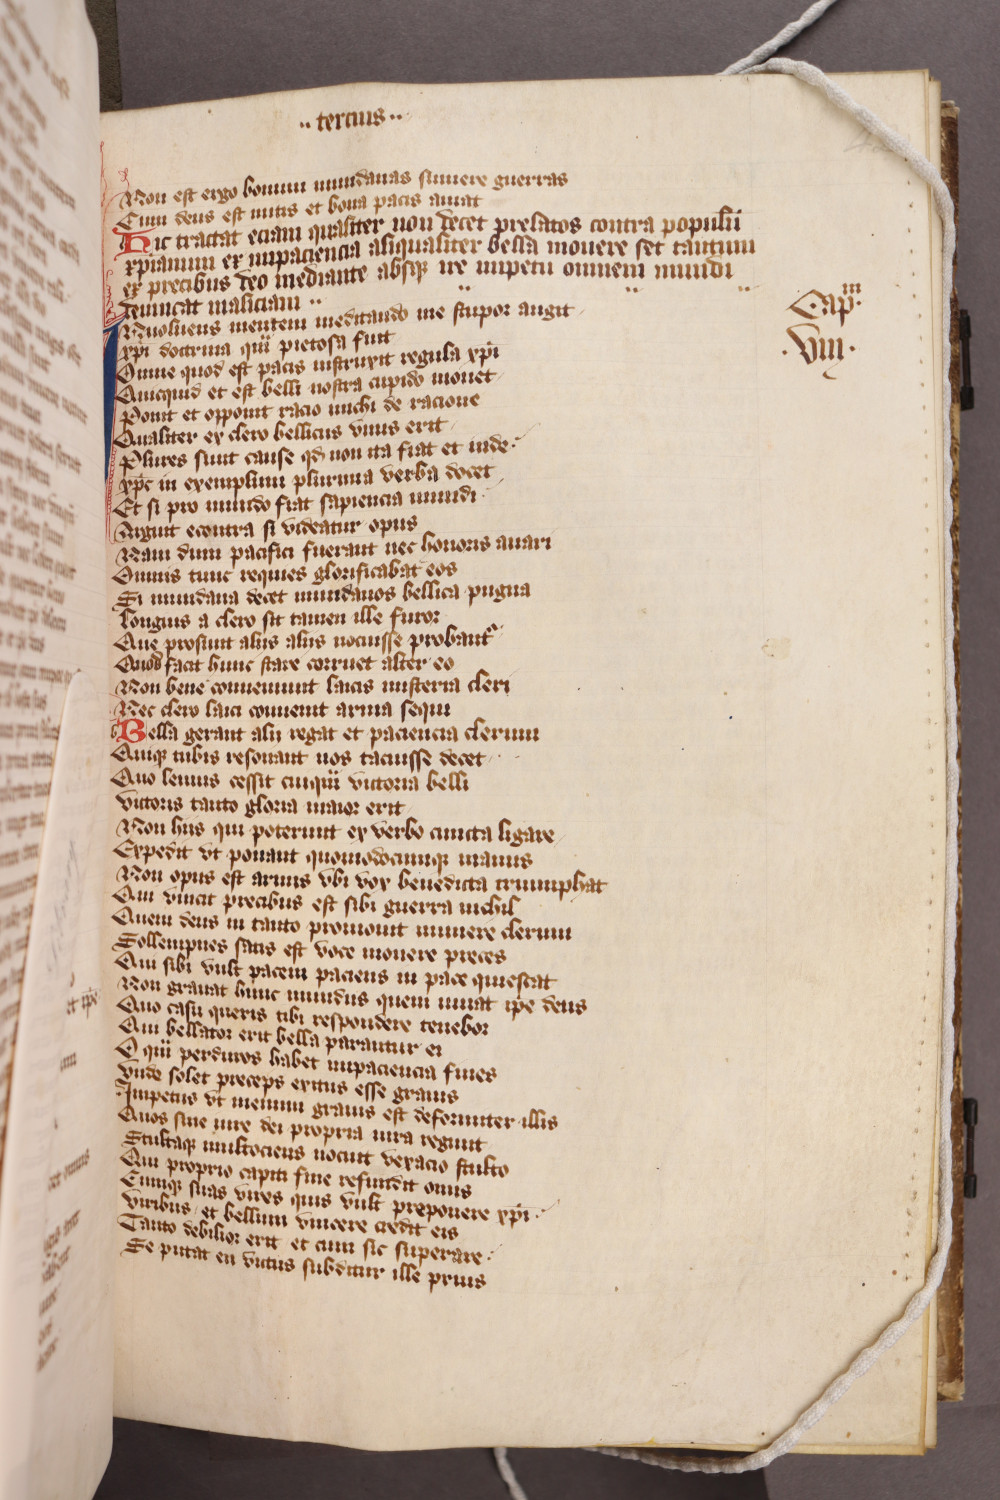 ·· tercius ··
Non est ergo bonum mundanas sumere guerras
Cum deus est mitis et bona pacis amat
Hic tractat eciam qualiter non decet prelatos contra populū
xpianum ex impaciencia aliqualiter bella mouere set tantum
ex precibus deo mediante absqꝫ ire impetu omnem mundi
deuincat maliciam ··
Capᵐ
·VIII·
Reuoluens mentem meditando me stupor angit
xp̄i doctrina qm̄ pietosa fuit
Omne quod est pacis instruxit regula xp̄i
Quicquid et est belli nostra cupido mouet
Ponit et opponit racio michi de racione
Qualiter ex clero bellicus vnus erit
Plures sunt cause qd̄ non ita fiat et inde
xp̄c in exemplum plurima verba docet
Et si pro mundo fiat sapiencia mundi
Arguit econtra si videatur opus
Nam dum pacifici fuerant nec honoris auari
Omnis tunc requies glorificabat eos
Si mundana decet mundanos bellica pugna
Longius a clero sit tamen ille furor
Que prosunt aliis aliis nocuisse probantʳ
Quod facit hunc stare corruet alter eo
Non bene conueniunt laicis misteria cleri
Nec clero laici conuenit arma sequi
Bella gerant alii regat et paciencia clerum
Quiqꝫ tubis resonant nos tacuisse decet
Quo leuius cessit cuiqm̄ victoria belli
victoris tanto gloria maior erit
Non hiis qui poterunt ex verbo cuncta ligare
Expedit vt ponant quomodocumqꝫ manus
Non opus est armis vbi vox benedicta triumphat
Qui vincit precibus est sibi guerra nichil
Quem deus in tanto promouit munere clerum
Sollempnes satis est voce mouere preces
Qui sibi vult pacem paciens in pace quiescat
Non grauat hunc mundus quem iuuat ip̄e deus
Quo casu queris tibi respondere tenebor
Qui bellator erit bella parantur ei
O qm̄ perduros habet impaciencia fines
Vnde solet preceps exitus esse grauis
Impetus vt mentium grauis est deformiter illis
Quos sine iure dei propria iura regunt
Stultaqꝫ multociens nocuit veracio stulto
Qui proprio capiti fine refundit onus
Cumqꝫ suas vires quis vult preponere xp̄i
viribus et bellum vincere credit eis
Tanto debilior erit et cum sic superare
Se putat en victus subditur ille prius